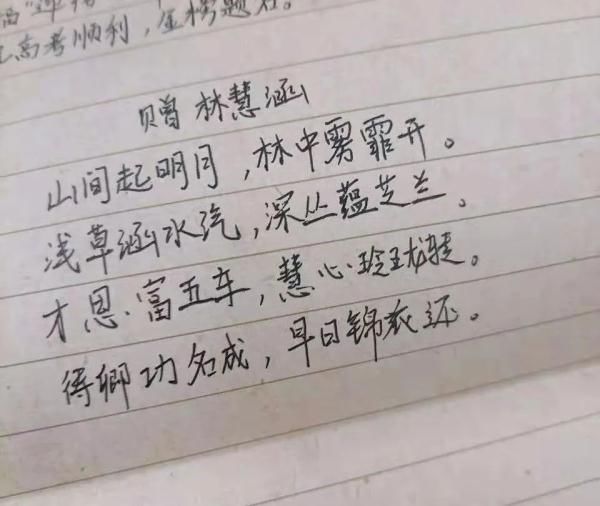 高考顺利，金榜题名。
赠 林慧涵
山间起明月，林中雾霏开。
浅草涵水汽，深丛蕴芝兰。
才思富五车，慧心玲珑转。
得卿功名成，早日锦衣还。